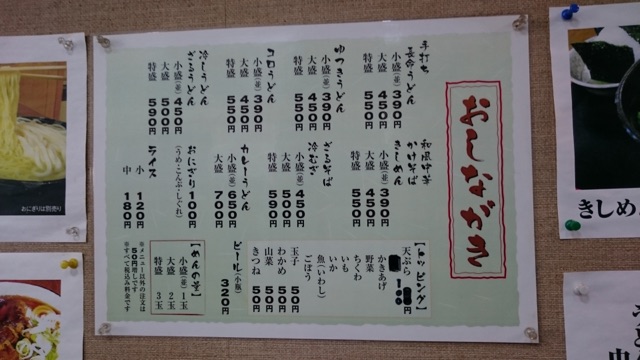 おしながき
手打ち
長命うどん
小盛(並)390円
大盛 450円
特盛 550円
ゆつきうどん
小盛(並)390円
大盛 450円
特盛 550円
コロうどん
小盛(並)390円
大盛 450円
特盛 550円
冷しうどん
ざるうどん
小盛(並)450円
大盛 500円
特盛 590円
和風中華
かけそば
きしめん
小盛(並)390円
大盛 450円
特盛 550円
ざるそば
冷むぎ
小盛(並)450円
大盛 500円
特盛 590円
カレーうどん
小盛(並)650円
大盛 700円
おにぎり 100円
(うめ・こんぶ・しぐれ)
ライス
小 120円
中 180円
【トッピング】
天ぷら
かきあげ
野菜
ちくわ
いも
いか
魚(いわし)
ごぼう
玉子 50円
わかめ 50円
山菜 50円
きつね 50円
ビール(小瓶)
320円
【めんの量】
小盛(並) 1玉
大盛 2玉
特盛 3玉
※メニュー以外の注文は
50円増しです
※すべて税込み料金です
おにぎりは別売り
きしめ